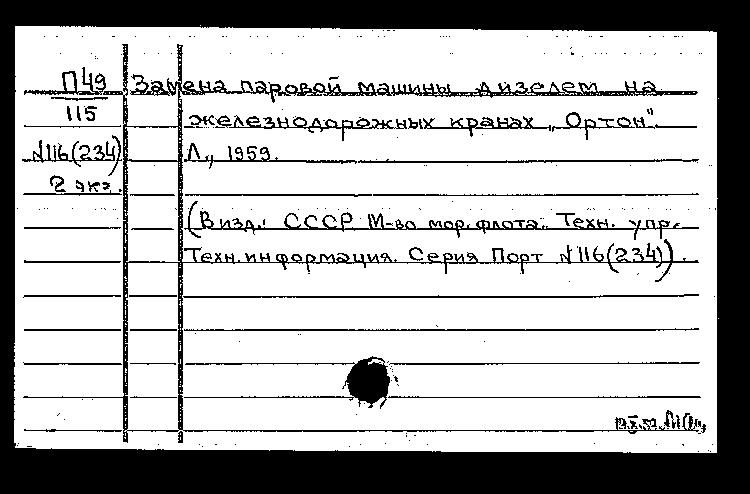 П49
115
№116(234)
2 экз.
Замена паровой машины дизелем на
железнодорожных кранах „Ортон".
Л., 1959.
(В изд.: СССР. М-во мор. флота. Техн. упр.
Техн. информация. Серия Порт №116(234)).